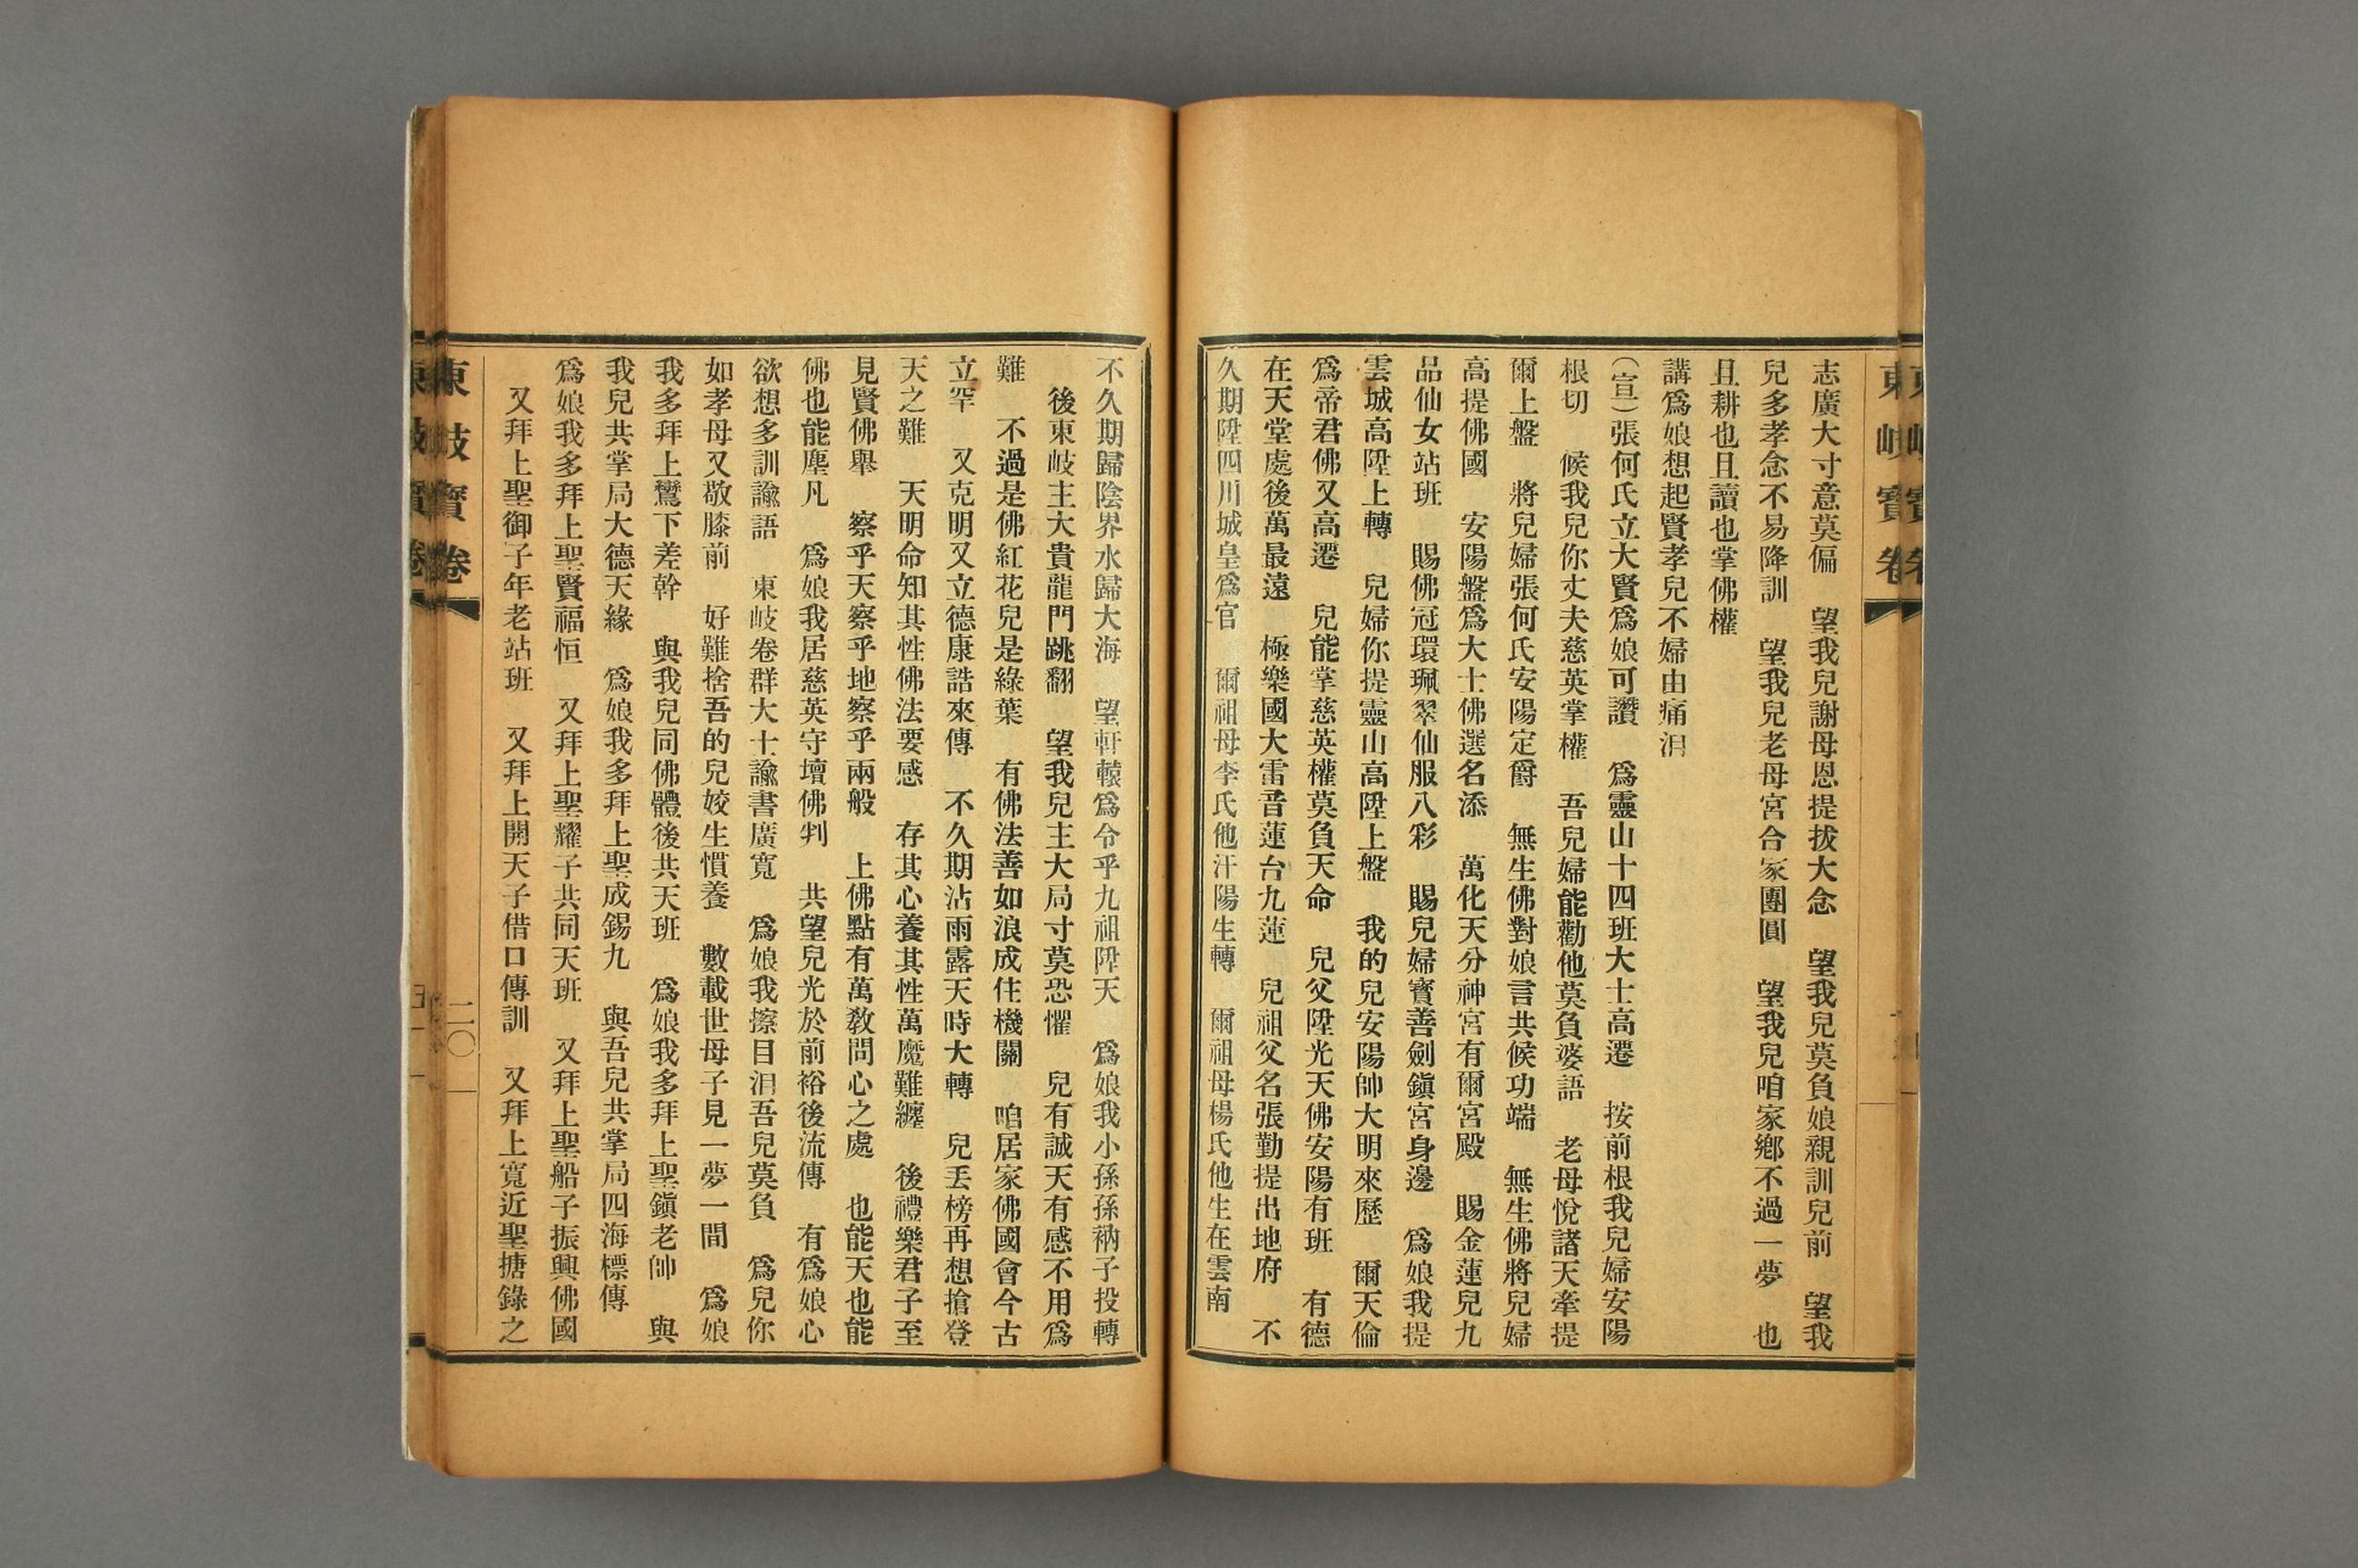 東岐寳卷
志廣大寸意莫偏　望我兒謝母恩提拔大念　望我兒莫負娘親訓兒前　望我
兒多孝念不易降訓　望我兒老母宮合家團圓　望我兒咱家鄉不過一夢　也
且耕也且讀也掌佛權
講爲娘想起賢孝兒不婦由痛泪
（宣）張何氏立大賢爲娘可讚　爲靈山十四班大士高遷　按前根我兒婦安陽
根切　候我兒你丈夫慈英掌權　吾兒婦能勸他莫負婆語　老母悅諸天牽提
爾上盤　將兒婦張何氏安陽定爵　無生佛對娘言共候功端　無生佛將兒婦
高提佛國　安陽盤爲大士佛選名添　萬化天分神宮有爾宮殿　賜金蓮兒九
品仙女站班　賜佛冠環珮翠仙服八彩　賜兒婦寳善劍鎭宮身邊　爲娘我提
雲城高陞上轉　兒婦你提靈山高陞上盤　我的兒安陽帥大明來歷　爾天倫
爲帝君佛又高遷　兒能掌慈英權莫負天命　兒父陞光天佛安陽有班　有德
在天堂處後萬最遠　極樂國大雷音蓮台九蓮　兒祖父名張勤提出地府　不
久期陞四川城皇爲官　爾祖母李氏他汗陽生轉　爾祖母楊氏他生在雲南
不久期歸陰界水歸大海　望軒轅爲令乎九祖陞天　爲娘我小孫孫衲子投轉
後東岐主大貴龍門跳翻　望我兒主大局寸莫恐懼　兒有誠天有感不用爲
難　不過是佛紅花兒是綠葉　有佛法善如浪成住機關　咱居家佛國會今古
立罕　又克明又立德康誥來傳　不久期沾雨露天時大轉　兒丢榜再想搶登
天之難　天明命知其性佛法要感　存其心養其性萬魔難纏　後禮樂君子至
見賢佛舉　察乎天察乎地察乎兩般　上佛點有萬敎問心之處　也能天也能
佛也能塵凡　爲娘我居慈英守壇佛判　共望兒光於前裕後流傳　有爲娘心
欲想多訓諭語　東岐卷群大士諭書廣寬　爲娘我擦目泪吾兒莫負　爲兒你
如孝母又敬膝前　好難捨吾的兒姣生慣養　數載世母子見一夢一間　爲娘
我多拜上鸞下差幹　與我兒同佛體後共天班　爲娘我多拜上聖鎭老帥　與
我兒共掌局大德天緣　爲娘我多拜上聖成錫九　與吾兒共掌局四海標傳
爲娘我多拜上聖賢福恒　又拜上聖耀子共同天班　又拜上聖船子振興佛國
又拜上聖御子年老站班　又拜上開天子借口傳訓　又拜上寬近聖搪錄之
東岐寳卷
二〇